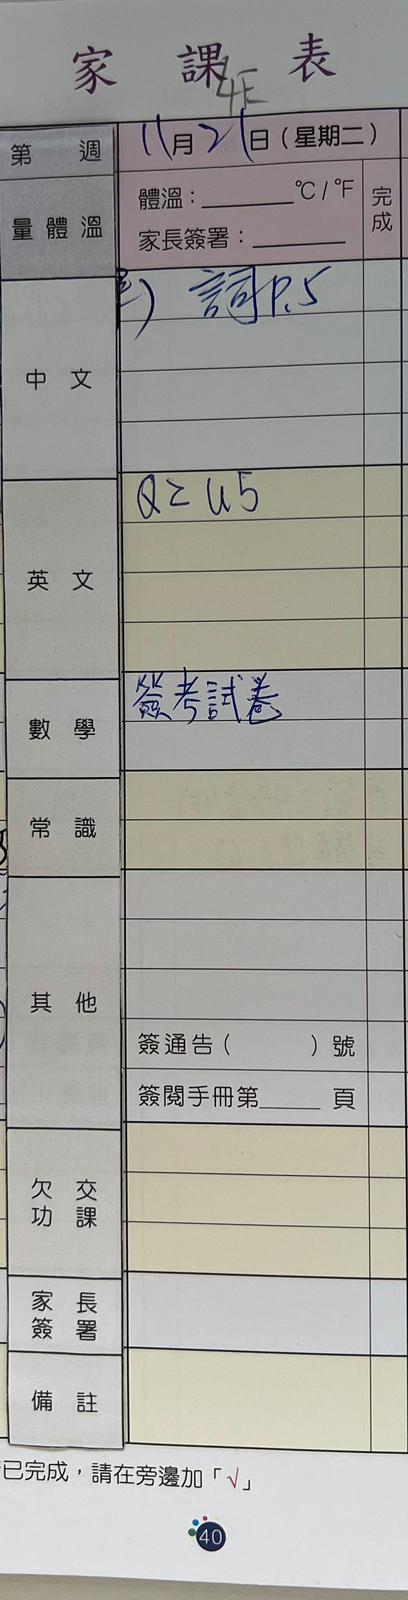 家課表
4E
第 週
11月21日(星期二)
量體溫
體溫：________°C/°F
家長簽署：________
完成
中文
) 詞P.5
英文
Q2 U5
數學
簽考試卷
常識
其他
簽通告( )號
簽閱手冊第_____頁
欠交功課
家長簽署
備註
已完成，請在旁邊加「√」
40